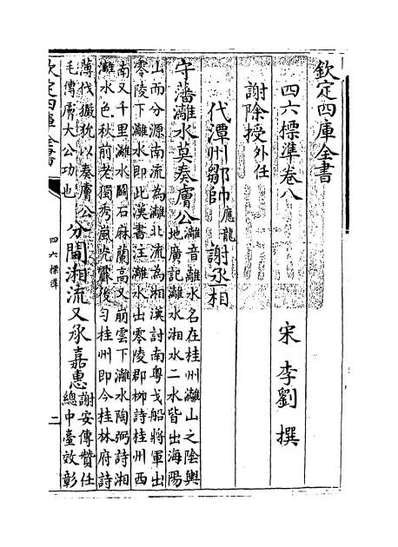 欽定四庫全書
四六標準卷八
宋 李劉 撰
謝除授外任
代潭州鄒帥應龍謝丞相
守藩灕水莫奏膚公灕音離水名在桂州灕山之陰輿
地廣記灕水湘水二水皆出海陽
山而分源南流為灕北流為湘漢討南粤戈船將軍出
零陵下灕水即此漢書注灕水出零陵郡柳詩桂州西
南又千里灕水鬬石麻蘭高又崩雲下灕水陶弼詩湘
灕水色秋前老獨秀嵐光
後勻桂州即今桂林府詩
薄伐玁狁以奏膚公
毛傳膚大公功也
分閫湘流又承嘉惠謝安傳贊任
總中臺效彰
欽定四庫全書
四六標準
二